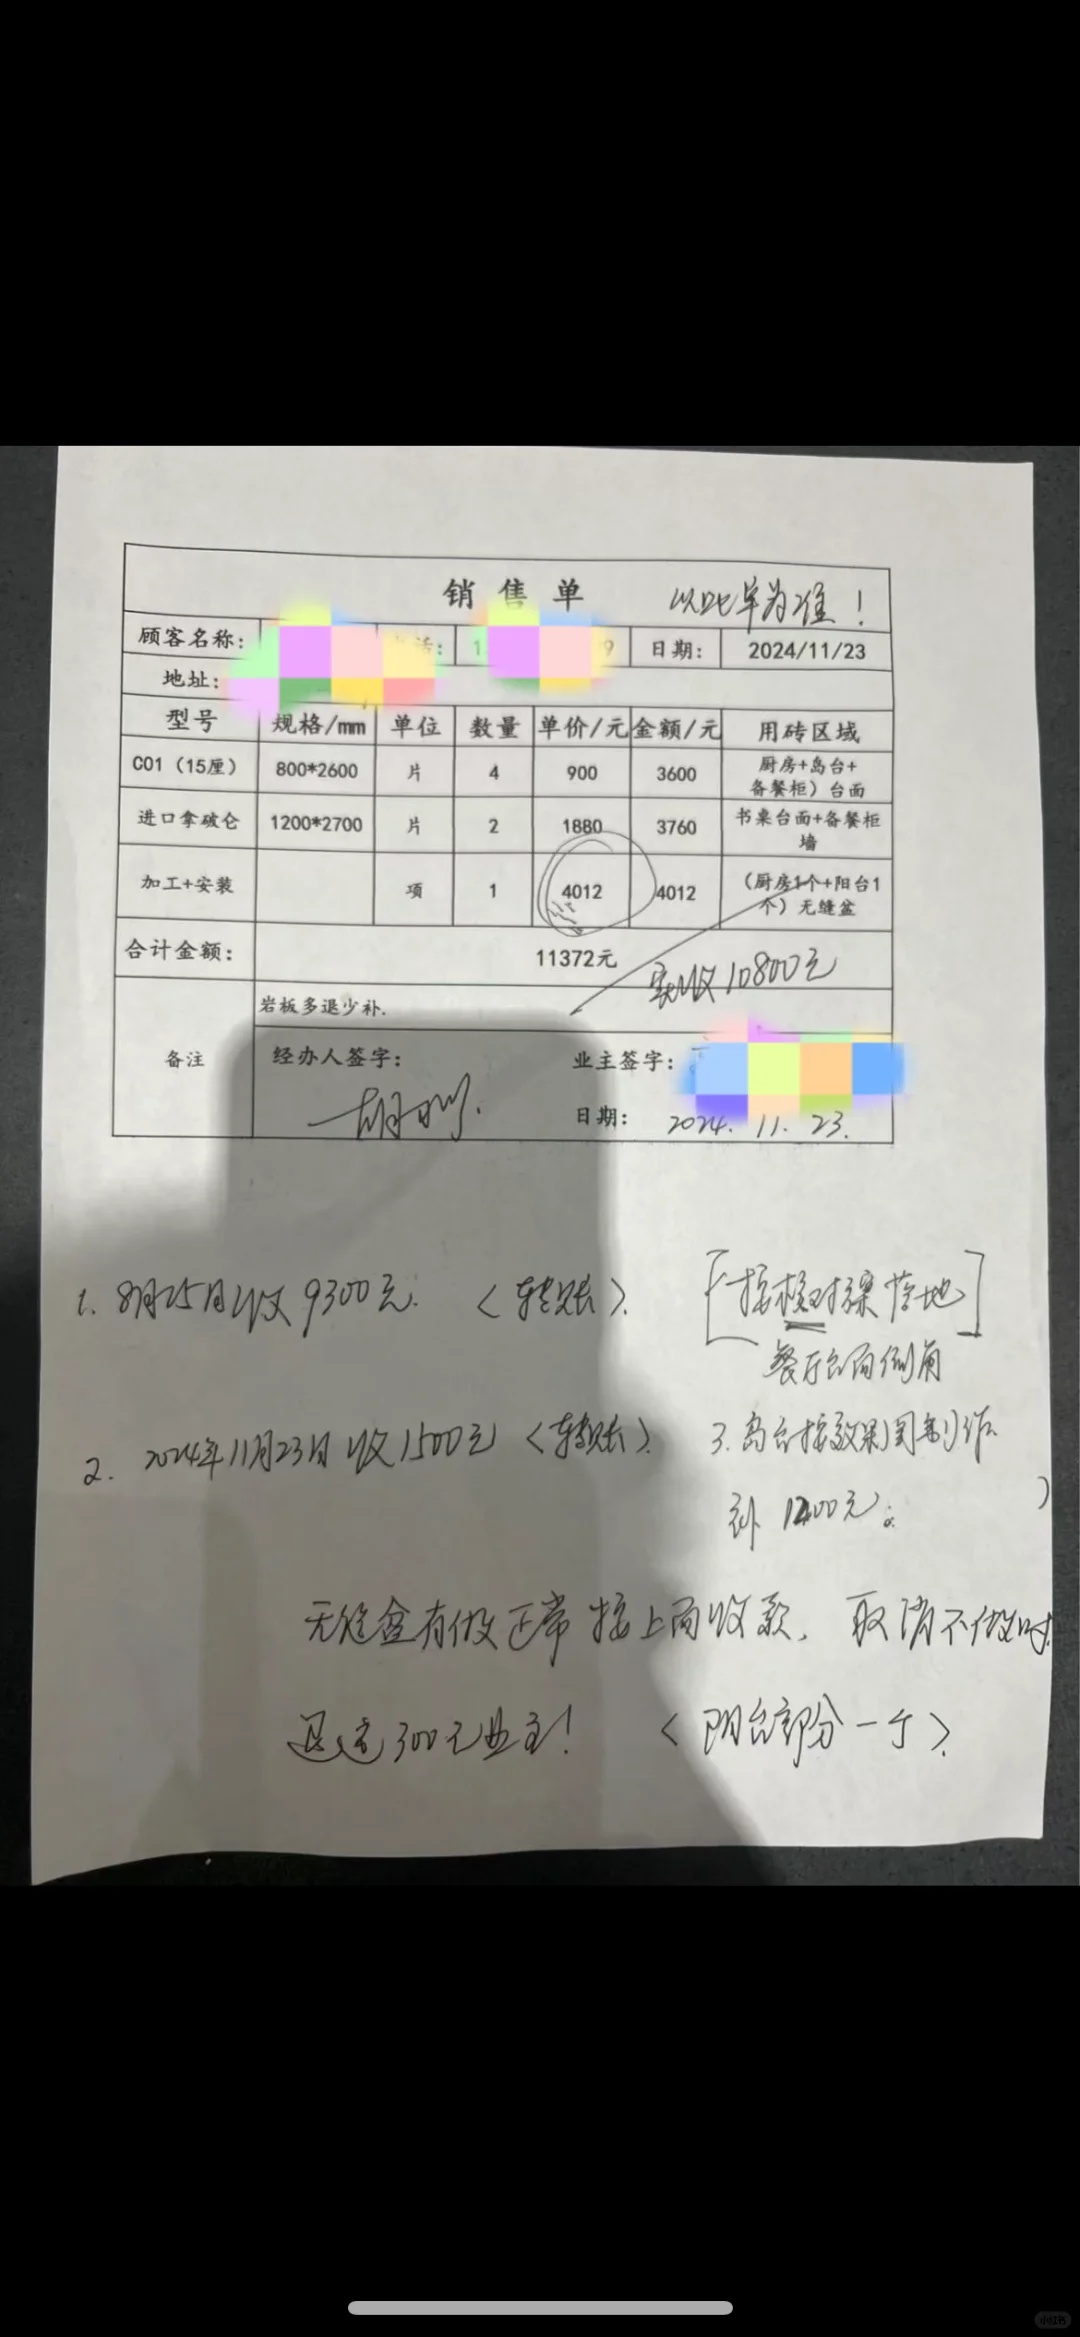 销售单 以此单为准!
顾客名称: 话: 1 9 日期: 2024/11/23
地址:
型号 规格/mm 单位 数量 单价/元 金额/元 用砖区域
C01 (15厘) 800*2600 片 4 900 3600 厨房+岛台+
备餐柜) 台面
进口拿破仑 1200*2700 片 2 1880 3760 书桌台面+备餐柜
墙
加工+安装 项 1 4012 4012 (厨房1个+阳台1
个) 无缝盆
合计金额: 11372元
实收10800元
岩板多退少补.
备注 经办人签字: 业主签字:
日期: 2024. 11. 23.
1. 8月25日收9300元. (转账).
按 对 落地
餐厅台面倒角
2. 2024年11月23日收1500元 (转账).
3. 岛台按效果图制作
补 1200元。
无缝盆有做正常按上面收款, 取消不做时
退还300元业主! (阳台部分一个).
小红书